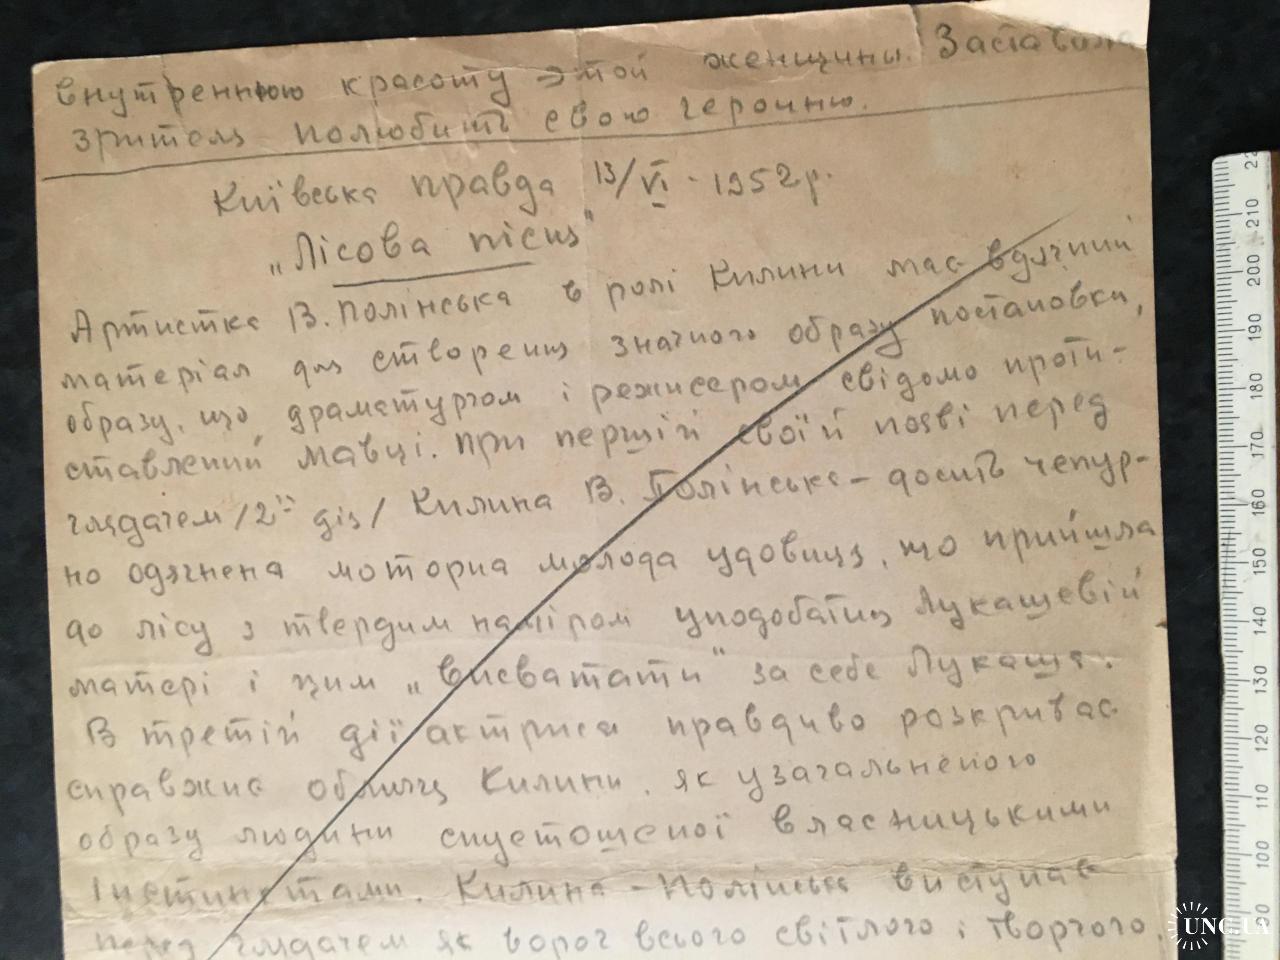 внутреннюю красоту этой женщины. Заставила
зрителя полюбить свою героиню.
Київська правда 13/VI - 1952 р.
„Лісова пісня"
Артистка В. Полінська в ролі Килини має вдячний
матеріал для створення значного образу постановки,
образу, що драматургом і режисером свідомо проти-
ставлений Мавці. При першій своїй появі перед
глядачем /2га дія/ Килина В. Полінська - досить чепур-
но одягнена моторна молода удовиця, що прийшла
до лісу з твердим наміром уподобатися Лукашевій
матері і цим „висватати" за себе Лукаша.
В третій дії актриса правдиво розкриває
справжнє обличчя Килини, як узагальненого
образу людини спустошеної власницькими
інстинктами. Килина - Полінська виступає
перед глядачем як ворог всього світлого і творчого.
220
210
200
190
180
170
160
150
140
130
120
110
100
90
UNC.UA